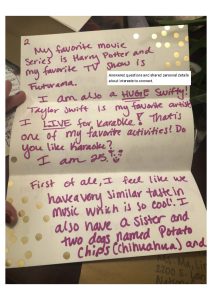 2
My favorite movie
series is Harry Potter and
my favorite TV Show is
Futurama.
Answered questions and shared personal details
about interests to connect.
I am also a HUGE Swifty!
Taylor Swift is my favorite artist
I LOVE for karaoke! That's
one of my favorite activities! Do
you like karaoke?
I am 25.
First of all, I feel like we
have a very similar taste in
music which is so cool! I
also have a sister and
two dogs named Potato
Chips (Chihuahua) and